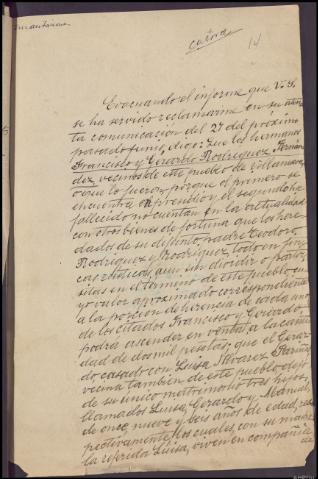 14
Evacuando el informe que V.S.
se ha servido reclamarme en su aten
ta comunicación del 27 del próximo
pasado Junio, digo: Que los hermanos
Francisco y Gerardo Rodriguez Fernan
dez, vecinos de este pueblo de
o que lo fueron, porque el primero se
encuentra en y el segundo ha
fallecido no cuentan en la actualidad
con otros bienes de fortuna que los here
dados de su difunto padre Teodoro
Rodriguez y Rodriguez, todo en fin
cas rústicas, aun sin dividir o partir,
sitas en el término de este pueblo cu
yo valor aproximado correspondiente
a la porcion de herencia de cada uno
de los citados Francisco y Gerardo,
podrá ascender en venta a la canti
dad de dos mil pesetas; que el Gerar
do casado con Luisa Alvarez
vecina tambien de este pueblo dejó
de su único matrimonio tres hijos,
llamados Luisa, Gerardo y Manuel
de once, nueve y seis años de edad, res
pectivamente, los cuales, con su madre
la referida Luisa, viven en compañia
de